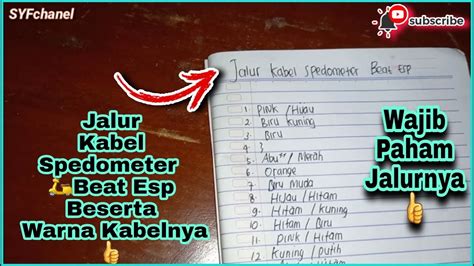 SYFchanel
subscribe
Jalur Kabel Spedometer Beat Esp
1 Pink / Hijau
2. Biru Kuning
3. Biru
4. }
5. Abu" / Merah
6. Orange
7 Biru Muda
8. Hijau / Hitam
9. Hitam / Kuning
10. Hitam / Biru
11. Pink / Hitam
12 Kuning / putih
Jalur
Kabel
Spedometer
Beat Esp
Beserta
Warna Kabelnya
Wajib
Paham
Jalurnya